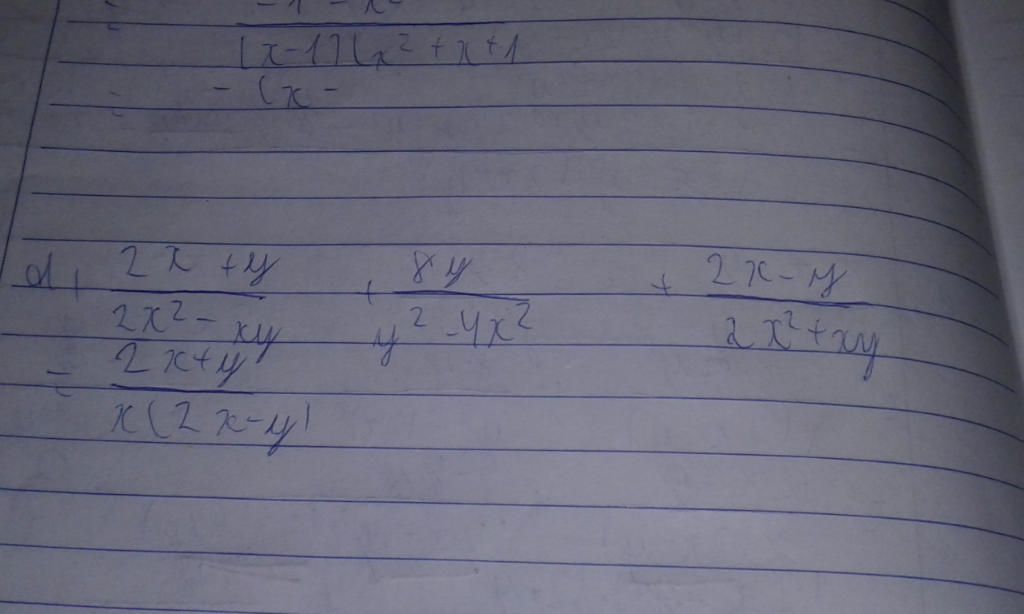 = -1 - x²
(x-1)(x² + x + 1
= - (x -
d, 2x + y / 2x² - xy + 8y / y² - 4x² + 2x - y / 2x² + xy
= 2x + y / x(2x - y)